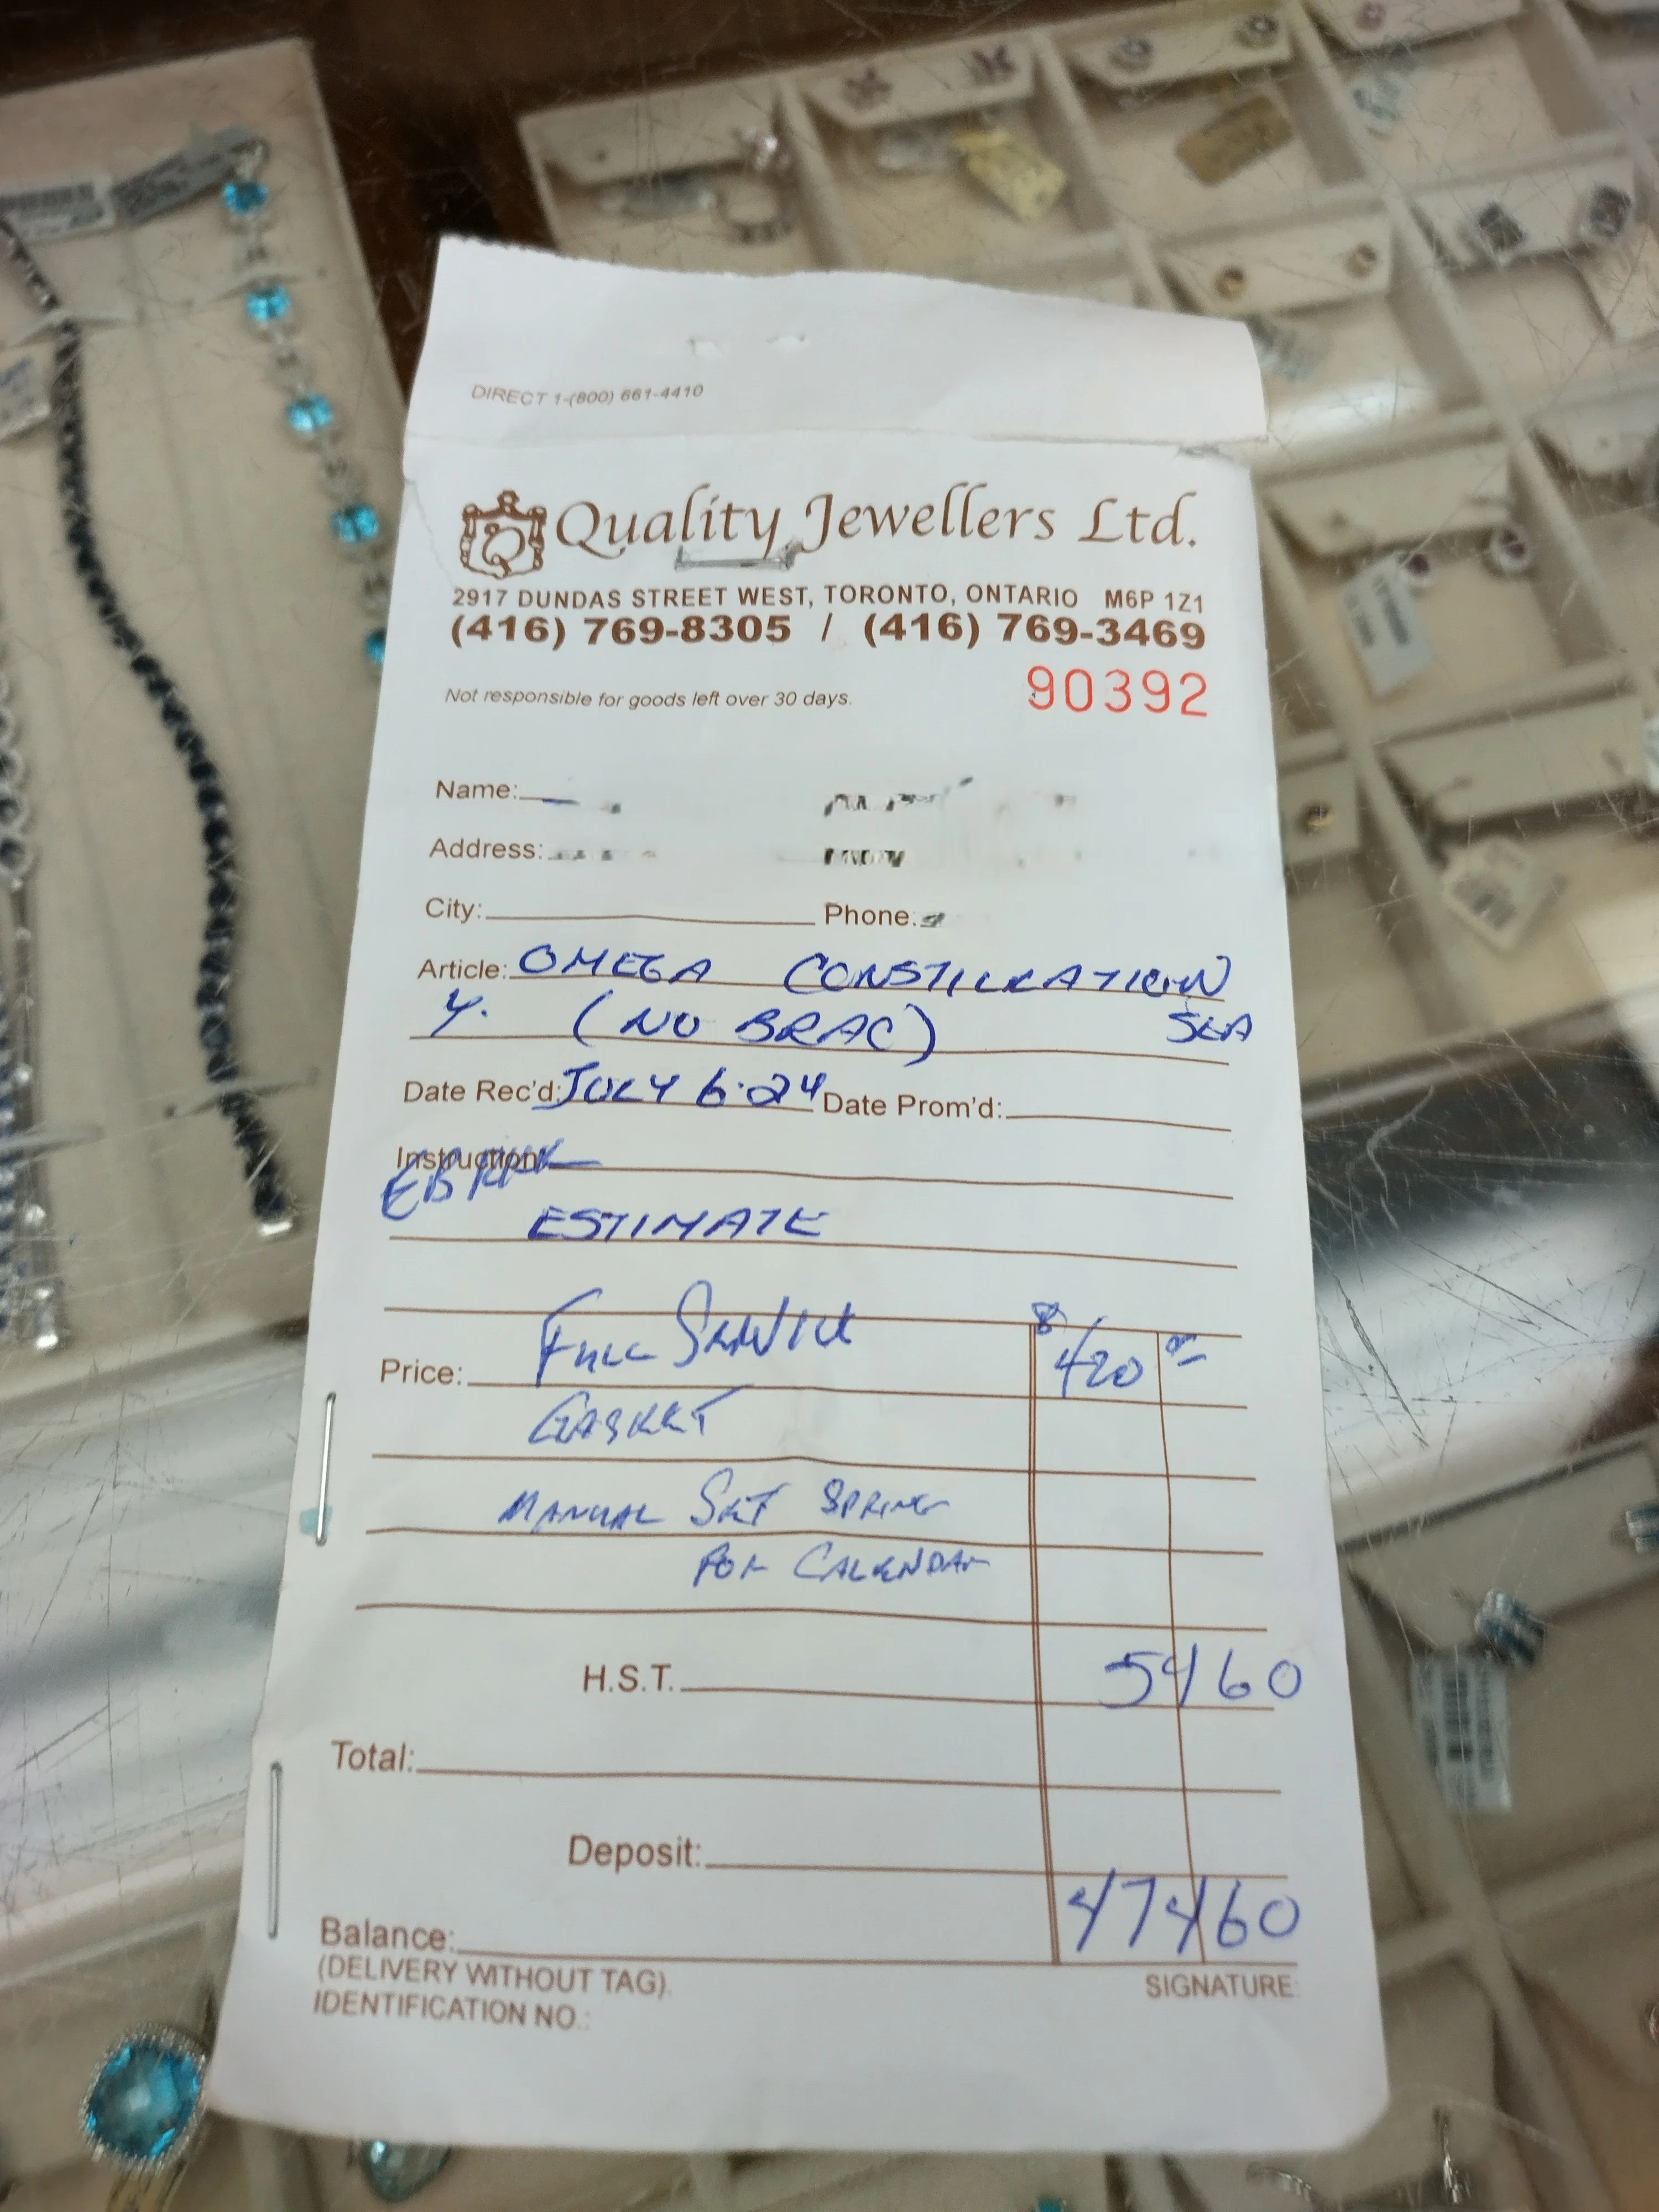 DIRECT 1-(800) 661-4410
Quality Jewellers Ltd.
2917 DUNDAS STREET WEST, TORONTO, ONTARIO M6P 1Z1
(416) 769-8305 / (416) 769-3469
Not responsible for goods left over 30 days. 90392
Name:
Address:
City: Phone:
Article: OMEGA CONSTILLATION
Y. (NO BRAC) SEA
Date Rec'd: JULY 6·24 Date Prom'd:
Instruction
ESTIMATE
Price: FULL SERVICE $420
GASKET
MANUAL SET SPRING
FOR CALENDAR
H.S.T. 54 60
Total:
Deposit:
Balance: 474 60
(DELIVERY WITHOUT TAG). SIGNATURE:
IDENTIFICATION NO.: